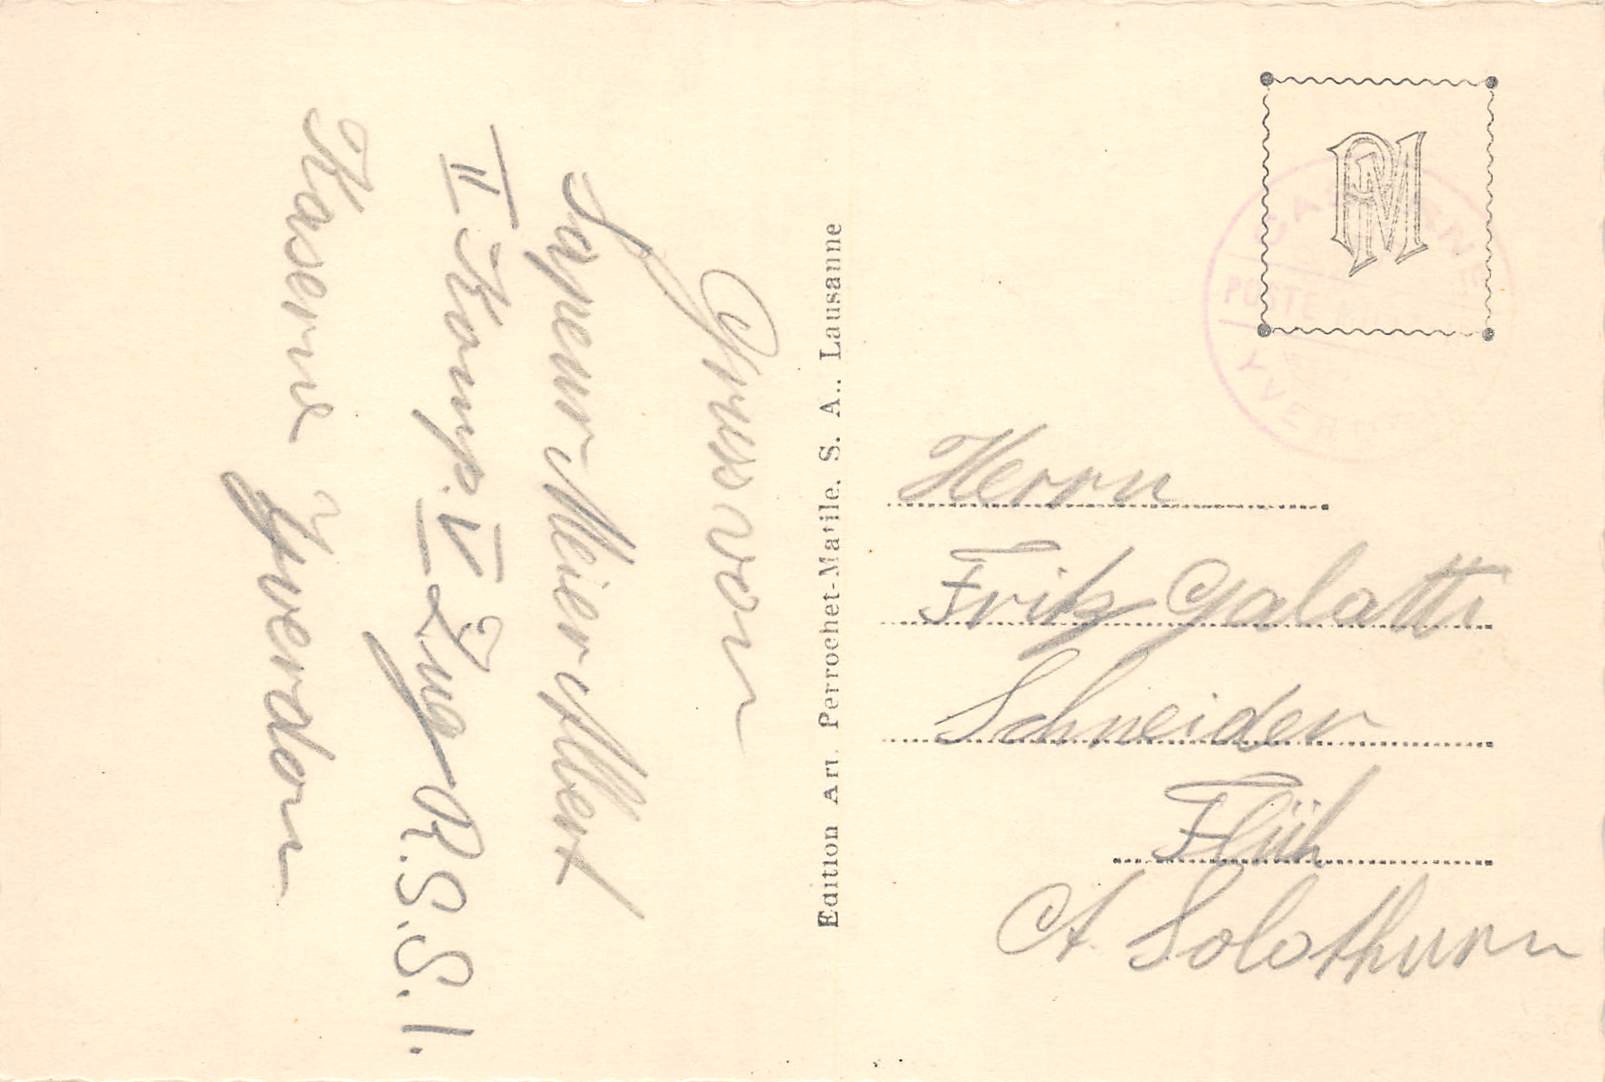 Gruss von
Sapeur Meier Albert
II Komp. IV Zug R.S.S.I.
Kaserne Yverdon
Edition Art. Perrochet-Matile. S. A., Lausanne
PAM
POSTE
YVERDON
Herrn
Fritz Galatti
Schneider
Flüh
Ct. Solothurn